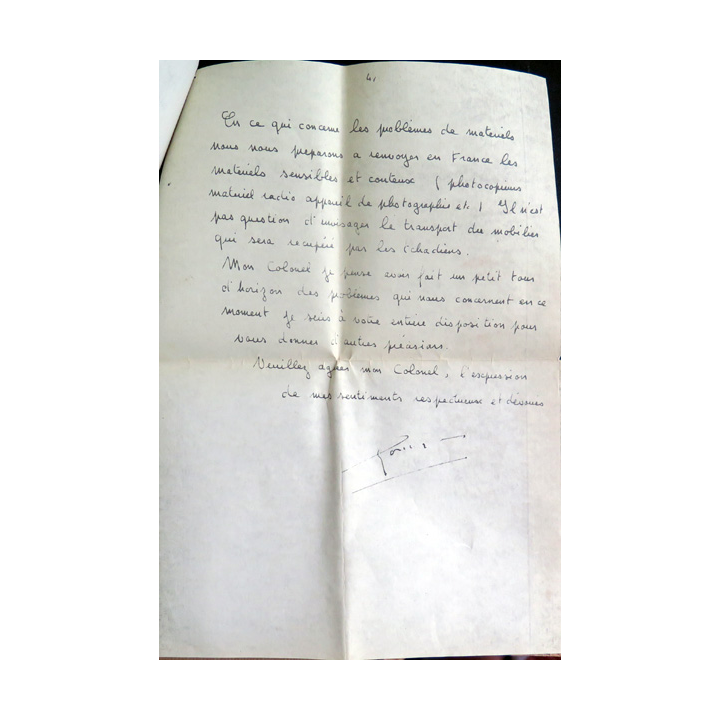 4,
En ce qui concerne les problèmes de matériels
nous nous preparons a renvoyer en France les
matériels sensibles et couteux ( photocopieurs
matériel radio appareil de photographie etc ) Il n'est
pas question d'envisager le transport du mobilier
qui sera recupéré par les tchadiens.
Mon Colonel je pense avoir fait un petit tour
d'horizon des problèmes qui nous concernent en ce
moment je suis à votre entière disposition pour
vous donner d'autres précisions.
Veuillez agréer mon Colonel, l'expression
de mes sentiments respectueux et dévoués